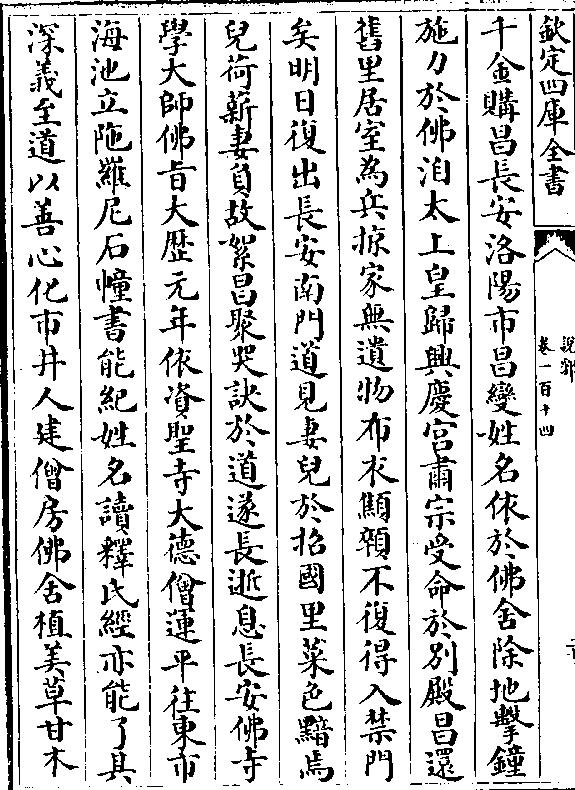 欽定四庫全書
說郛
卷一百十四
千金購昌長安洛陽市昌變姓名依於佛舍除地擊鐘
施力於佛洎太上皇歸興慶宮肅宗受命於別殿昌還
舊里居室為兵掠家無遺物布衣顦顇不復得入禁門
矣明日復出長安南門道見妻兒於招國里菜色黯焉
兒荷薪妻負故絮昌聚哭訣於道遂長逝息長安佛寺
學大師佛旨大歷元年依資聖寺大德僧運平往東市
海池立陁羅尼石幢書能紀姓名讀釋氏經亦能了其
深義至道以善心化市井人建僧房佛舍植美草甘木